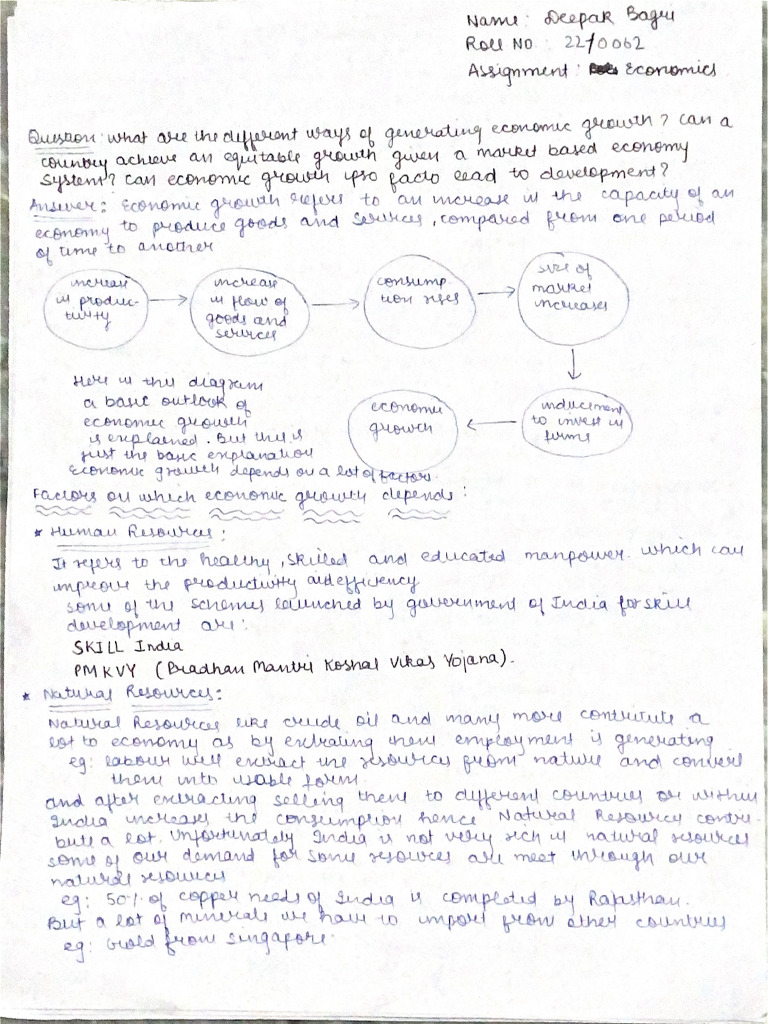 Name: Deepak Bagri
Roll No.: 22/0062
Assignment: Economics
Question: what are the different ways of generating economic growth? can a
country achieve an equitable growth given a market based economy
system? can economic growth ipso facto lead to development?
Answer: Economic growth refers to an increase in the capacity of an
economy to produce goods and services, compared from one period
of time to another
increase
in produc-
tivity
increase
in flow of
goods and
services
consump-
tion rises
size of
market
increases
inducement
to invest in
firms
economic
growth
Here in this diagram
a basic outlook of
economic growth
is explained. But this is
just the basic explanation
Economic growth depends on a lot of factors.
Factors on which economic growth depends:
* Human Resources:
It refers to the healthy, skilled and educated manpower. which can
improve the productivity and efficiency
some of the schemes launched by government of India for skill
development are:
SKILL India
PMKVY (Pradhan Mantri Koshal Vikas Yojana).
* Natural Resources:
Natural Resources like crude oil and many more contribute a
lot to economy as by extrating them employment is generating
eg: labour will extract the resources from nature and convert
them into usable form.
and after extracting selling them to different countries or within
India increases the consumption hence Natural Resources contri-
bute a lot. Unfortunately India is not very rich in natural resources
some of our demand for some resources are meet through our
natural resources
eg: 50% of copper needs of India is completed by Rajasthan.
But a lot of minerals we have to import from other countries
eg: Gold from Singapore.